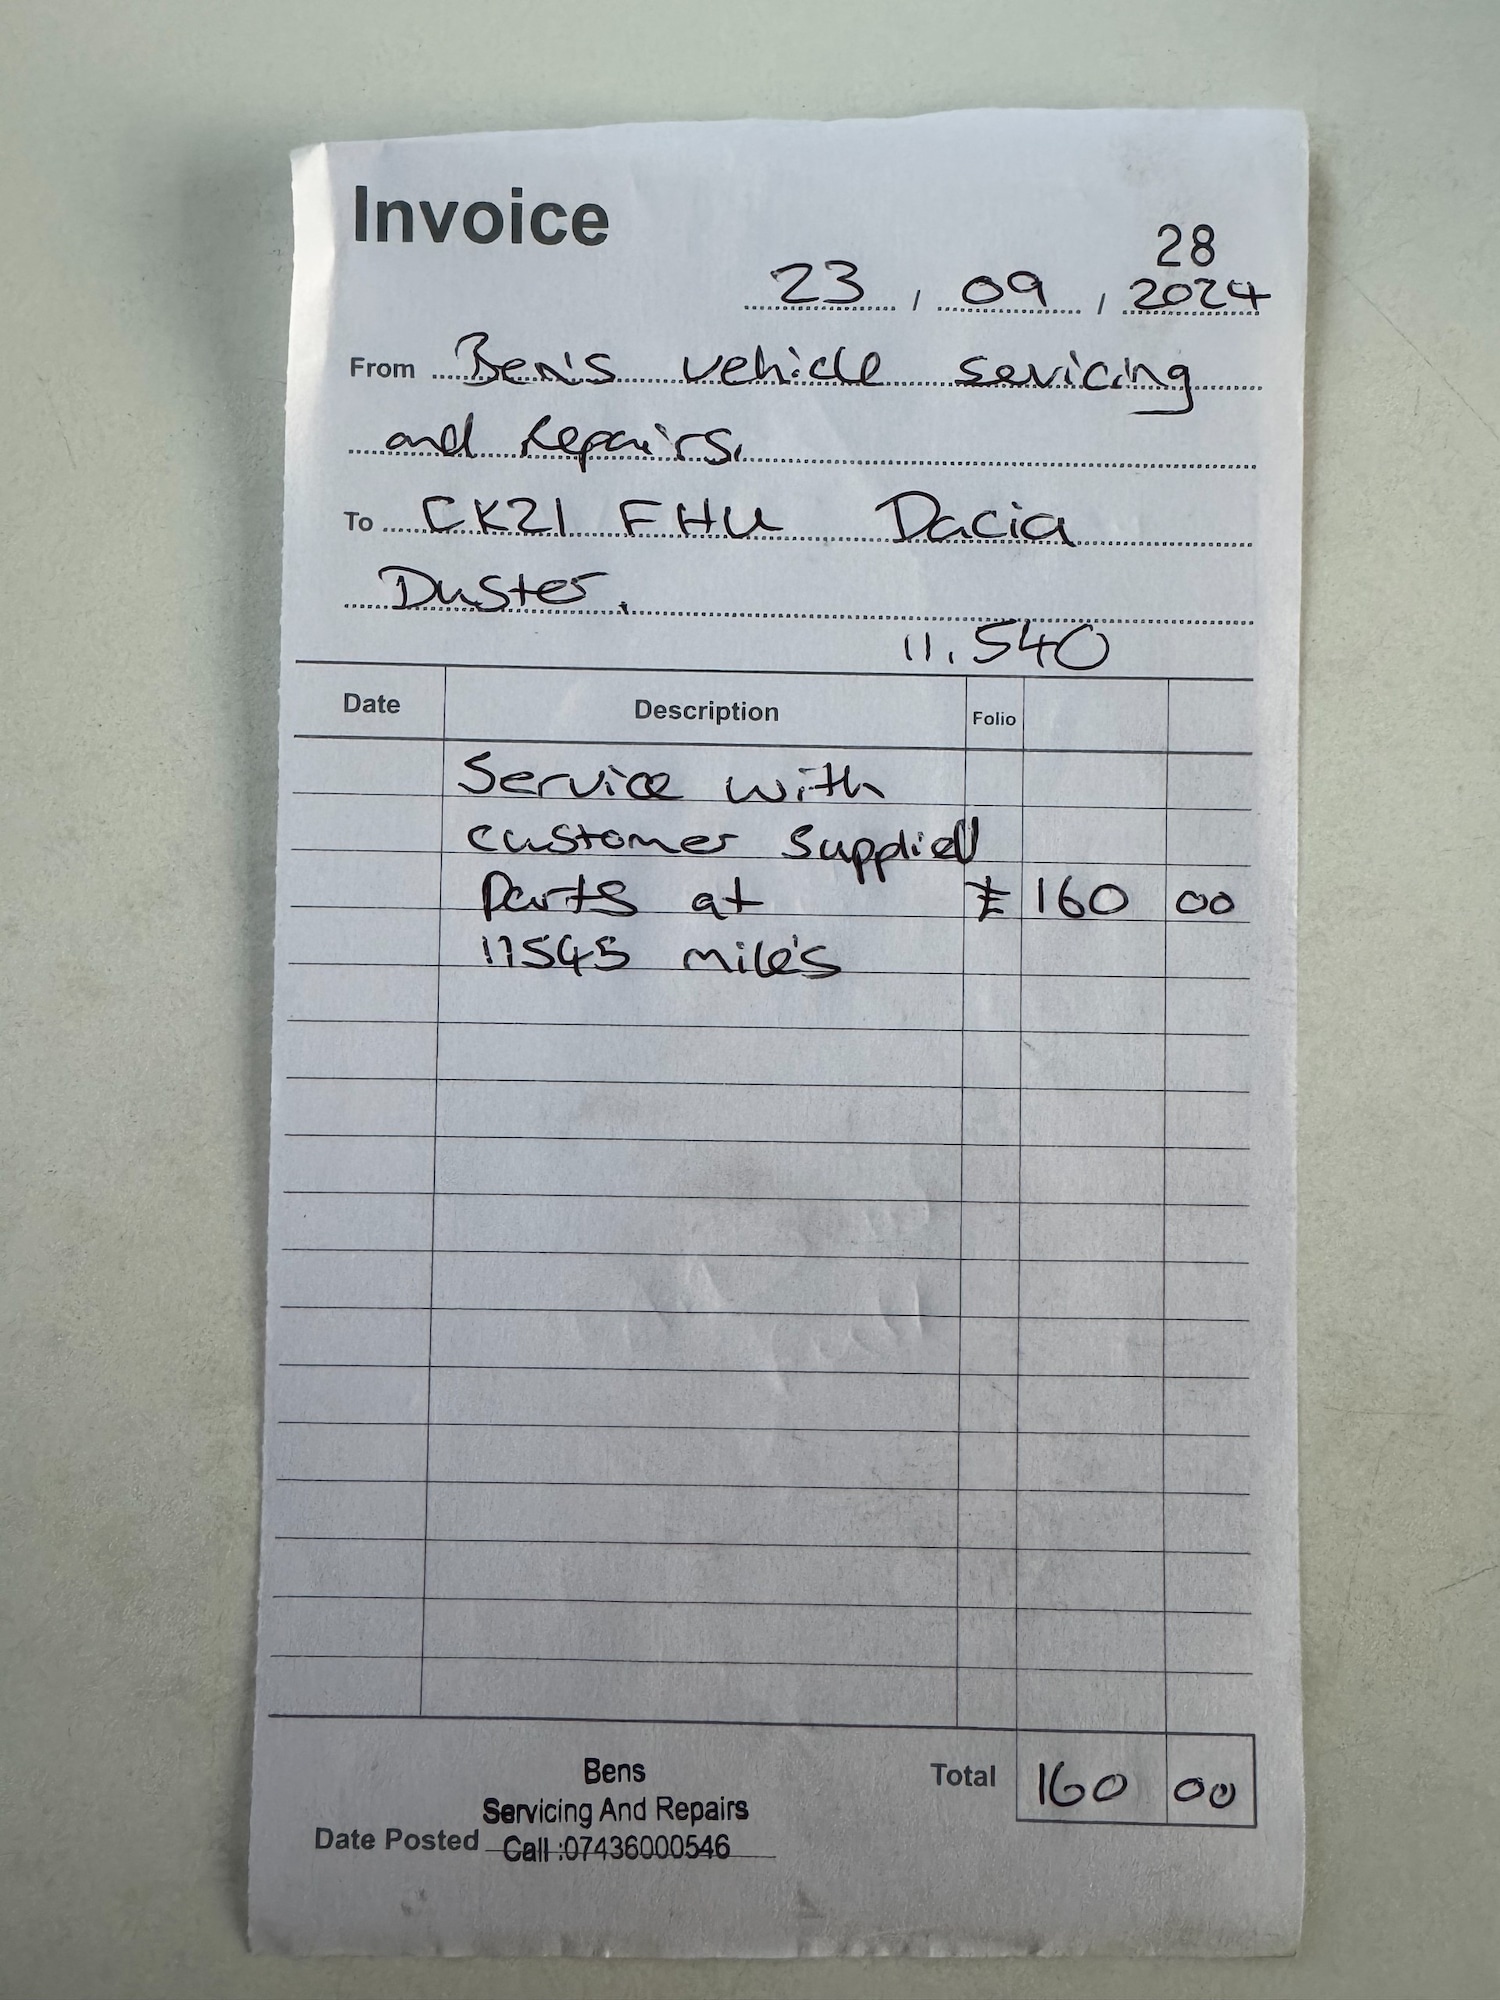 Invoice
28
23 / 09 / 2024
From Ben's vehicle servicing
and Repairs.
To CK21 FHU Dacia
Duster.
11.540
Date Description Folio
Service with
customer supplied
Parts at £ 160 00
11545 mile's
Total 160 00
Bens
Servicing And Repairs
Date Posted Call :07436000546